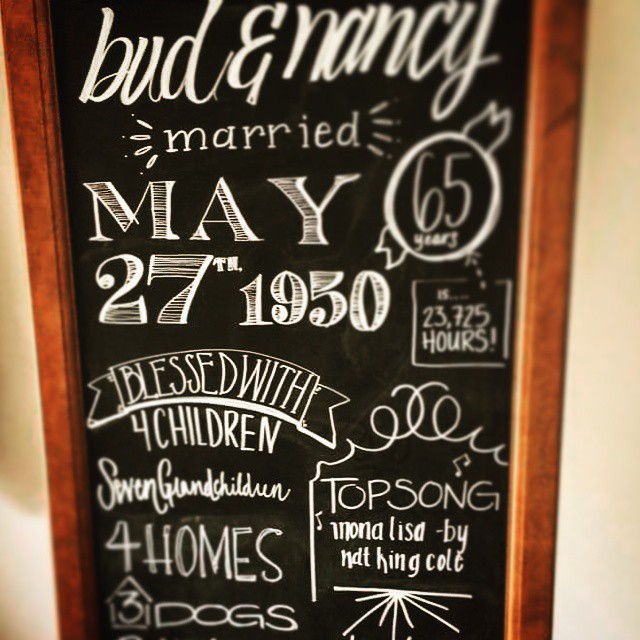 bud & nancy
married
MAY
27TH, 1950
65
years
is....
23,725
HOURS!
BLESSED WITH
4 CHILDREN
Seven Grandchildren
4 HOMES
3 DOGS
TOP SONG
mona lisa - by
nat king cole